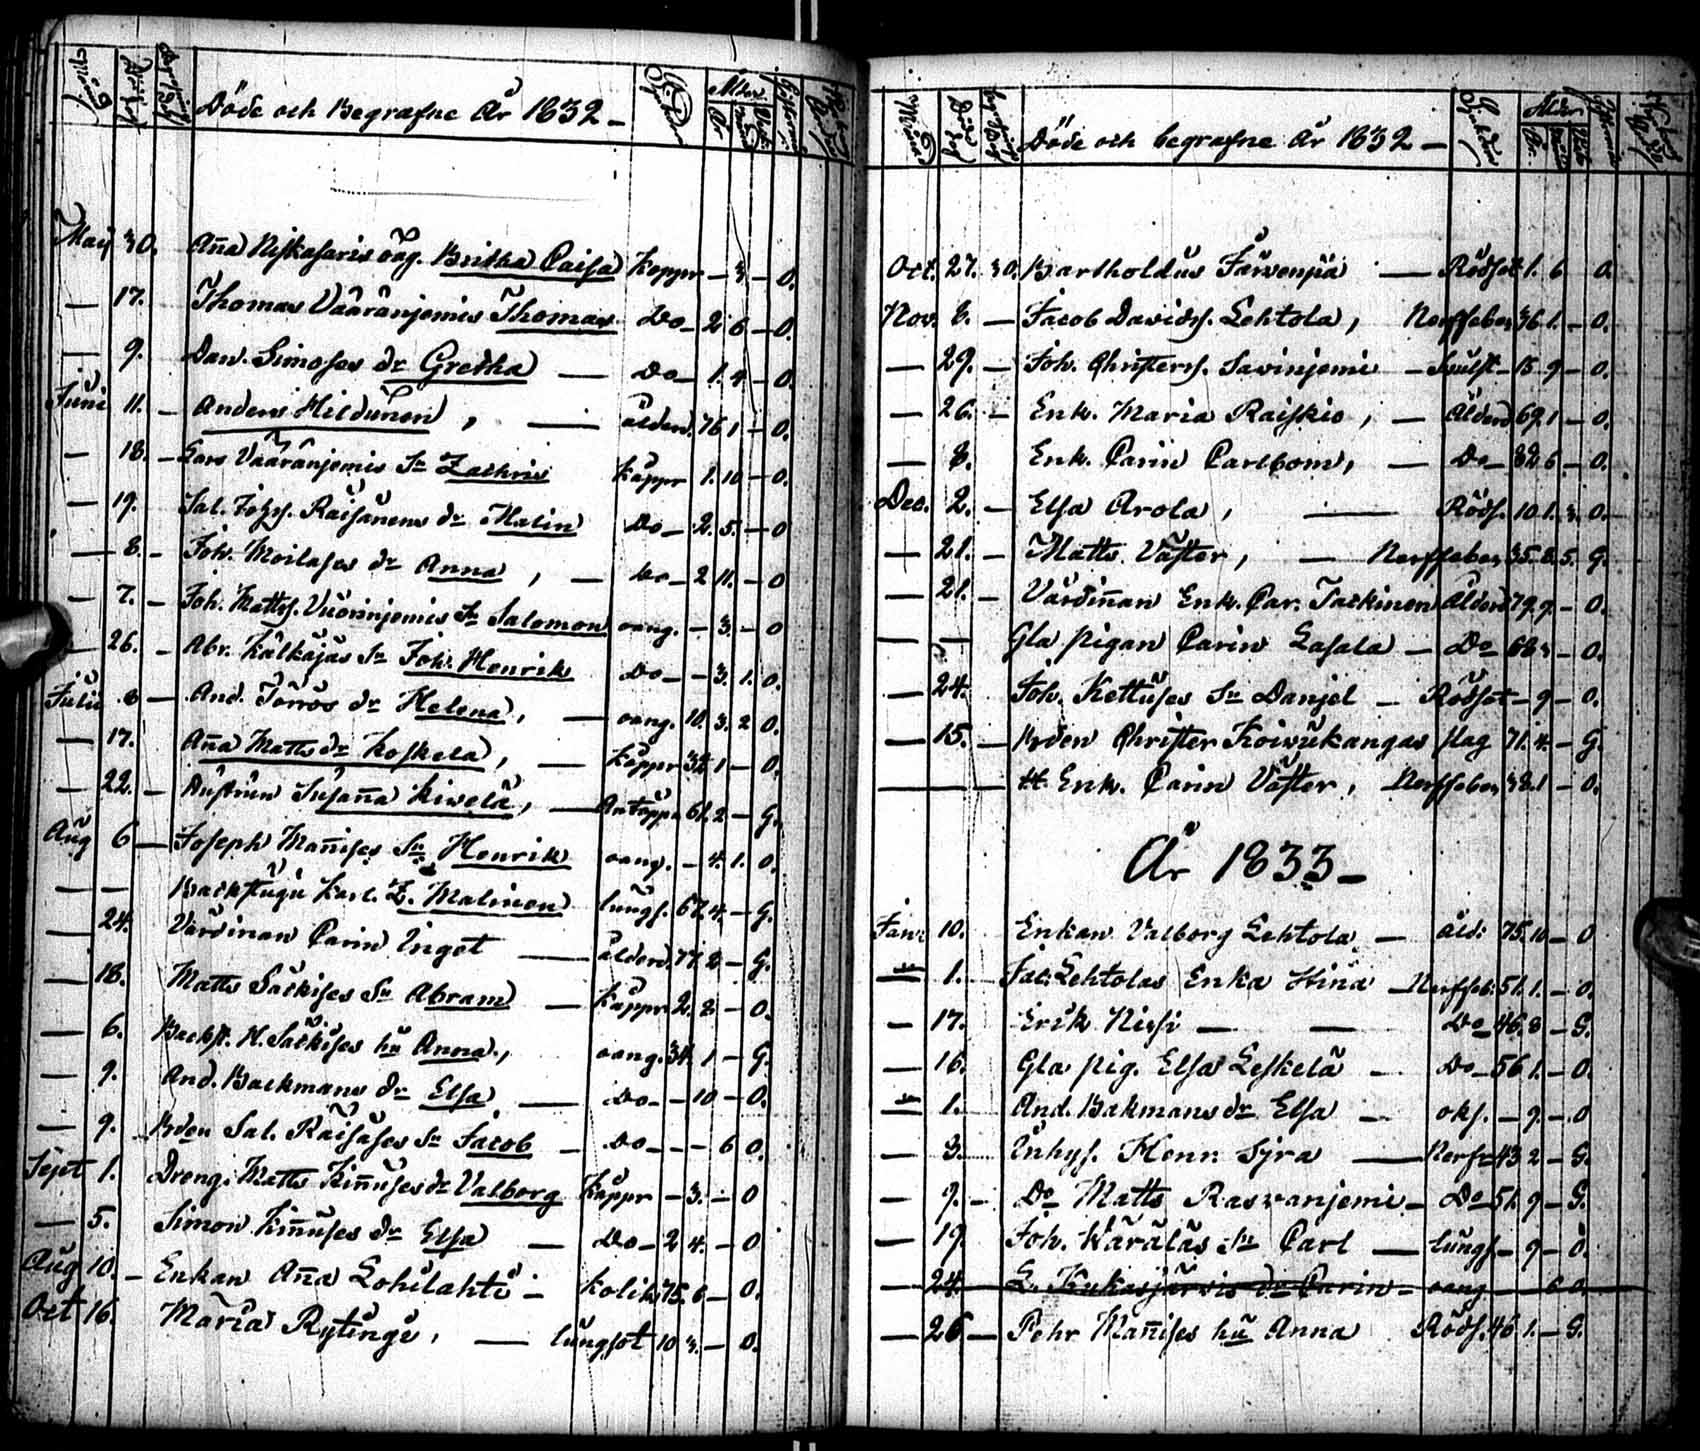 Månad Död dag Begrafnings dag Döde och Begrafne År 1832 – Sjukdom Ålder År Mån. Veck.
Maij 30. Aña Niskasaris oäg. Britha Caisa Koppr – 3 – O.
— 17. Thomas Vääränjemis Thomas Do – 2 6 – O.
— 9. Dan. Simoses dr Gretha — Do – 1. 4 – O.
Juni 11. – Anders Hildunen, — ålderd. 76 1 – O.
— 18. – Lars Vääränjemis Sn Zachris Koppr 1. 10 – O.
— 19. Sal. Johss. Raisänens dr Malin Do – 2. 5. – O
— 8. – Joh. Moilases dr Anna, — Do – 2 11. – O
— 7. – Joh. Mattss. Vuorinjemis Sn Salomon oang. – 3. – O
— 26. – Abr. Kälkäjas Sn Joh. Henrik Do – – 3. 1. O.
Julii 8 – And. Törrös dr Helena, — oang. 10. 3. 2 O.
— 17. Aña Matts dr Koskela, — Koppr 32 1 – O.
— 22. – Hustrun Susaña Kiwelä, — 61. 2 – G.
Aug 6 — Joseph Mañises Sn Henrik oang. – 4. 1. O.
— — Backstugu Karl. Z. Malinen lungs. 67. 4. – G.
— 24. Värdinan Carin Inget — ålderd. 77. 2 – G.
— 18. Matts Säckises Sn Abram — Koppr 2. 8 – O.
— 6. Backst. M. Säckises hu Anna., oang. 34. 1 – G.
— 9. And. Backmans dr Elsa — Do – – 10 – O.
— 9. Bden Sal. Raisases Sn Jacob – Do – – – 6 O.
Sept 1. Dreng. Matts Kiñuses dr Valborg Koppr – 3. – O
— 5. Simon Kiñuses dr Elsa — Do – 2 4. – O
Aug 10. – Enkan Aña Lohilahti – Kolik 75. 6 – O.
Oct 16. Maria Rytinge, — lungsot 10 3. – O.
Månad Död dag begrafnings dag Döde och begrafne År 1832 – Sjukdom Ålder År.
Oct. 27. 30. Bartholdus Järvenpää — Rödsot 1. 6 O.
Nov. 8. – Jacob Davidss. Lehtola, Nerffeber 36 1. – O.
— 29. – Joh. Christerss. Savinjemi – Svulst – 15 9 – O.
— 26. – Enk. Maria Raiskio, – Ålderd 69. 1 – O.
— 8. Enk. Carin Carlbom, — Do – 82 6 – O.
Dec. 2. – Elsa Arola, — Röds. 10 1. 3. O.
— 21. – Matts Väster, — Nerffeber 35. 8. 5. G.
— 21. – Värdiñan Enk. Car. Tackinen Ålderd 79. 9. – O.
— — Gla pigan Carin Lasala – Do 68 3 – O.
— 24. Joh. Kettuses Sn Danjel – Rödsot – 9 – O.
— 15. – Bden Christer Koivukangas slag 71. 4. – G.
— Enk. Carin Väster, Nerffeber 38. 1 – O.
År 1833 –
Janr 10. Enkan Valborg Lehtola — åld: 75. 10 – O
— 1. – Jac: Lehtolas Enka Hina – Nerffeb: 51. 1. – O.
— 17. Erik Nissi — — Do 46. 8 – G.
— 16. Gla pig. Elsa Leskelä – Do – 56 1. – O.
— 1. And. Bakmans dr Elsa — oks. – 9. – O
— 3. Inhys. Henr. Sjra — Nerfr 43 2 – G.
— 9. – Do Matts Rasvanjemi – Do – 51. 9 – G.
— 19. Joh. Käräläs Sn Carl — lungs – 9 – O.
— 24. L. Kukasjärvis dr Carin – oang — 6 O.
— 26 – Pehr Mañises hu Anna Röds. 46 1. – G.